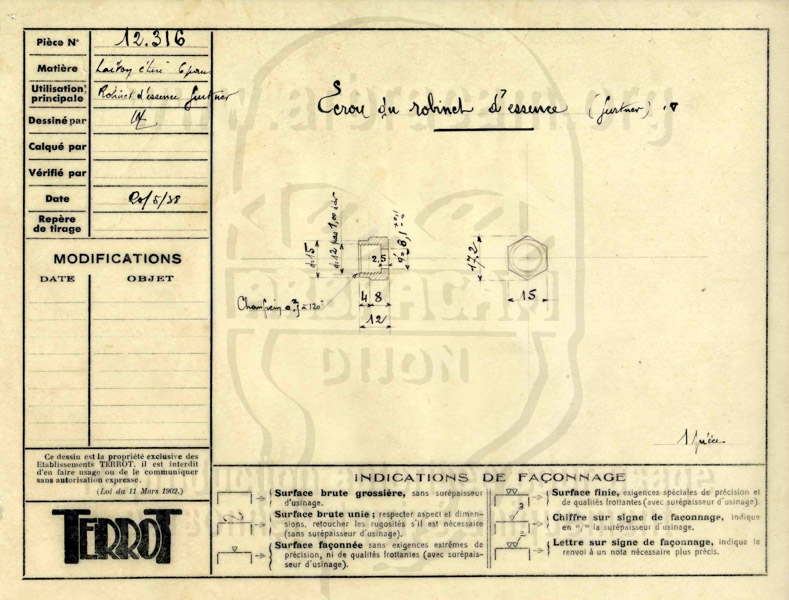 Pièce N° 12.316
Matière Laiton étiré 6 pans
Utilisation principale Robinet d'essence Gurtner
Dessiné par
Calqué par
Vérifié par
Date 20/5/38
Repère de tirage
MODIFICATIONS
DATE OBJET
Ce dessin est la propriété exclusive des
Etablissements TERROT, il est interdit
d'en faire usage ou de le communiquer
sans autorisation expresse.
(Loi du 11 Mars 1902.)
TERROT
Ecrou du robinet d'essence (Gurtner)
d=15
d=12 pas 1,00
2,5
d=8,1 +0,1
17,2
4 8
12
15
Chanfrein à 120°
1 pièce
INDICATIONS DE FAÇONNAGE
Surface brute grossière, sans surépaisseur
d'usinage.
Surface brute unie; respecter aspect et dimen-
sions, retoucher les rugosités s'il est nécessaire
(sans surépaisseur d'usinage).
Surface façonnée sans exigences extrêmes de
précision, ni de qualités frottantes (avec surépais-
seur d'usinage).
Surface finie, exigences spéciales de précision et
de qualités frottantes (avec surépaisseur d'usinage).
3
Chiffre sur signe de façonnage, indique
en "/m la surépaisseur d'usinage.
Lettre sur signe de façonnage, indique le
renvoi à un nota nécessaire plus précis.
ARBRACAM
DIJON